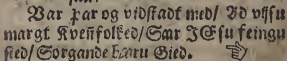 Var þar og vidstadt med/ Vo vijsu
margt Kvennfolked/ Sær JEsu feingu
sied/ Sorgande Hiartu Gied. ☞